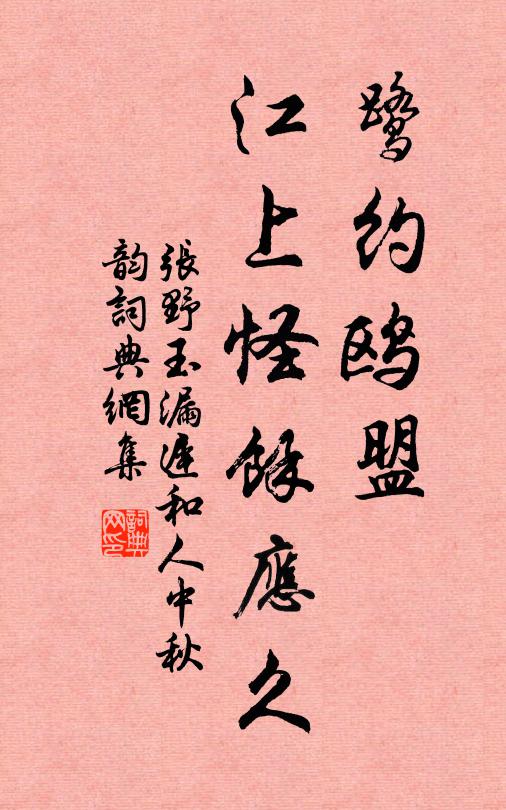 鷺約鸥盟
江上怪餘應久
張野玉漏遲和人中秋
韵詞典網集
詞典网印